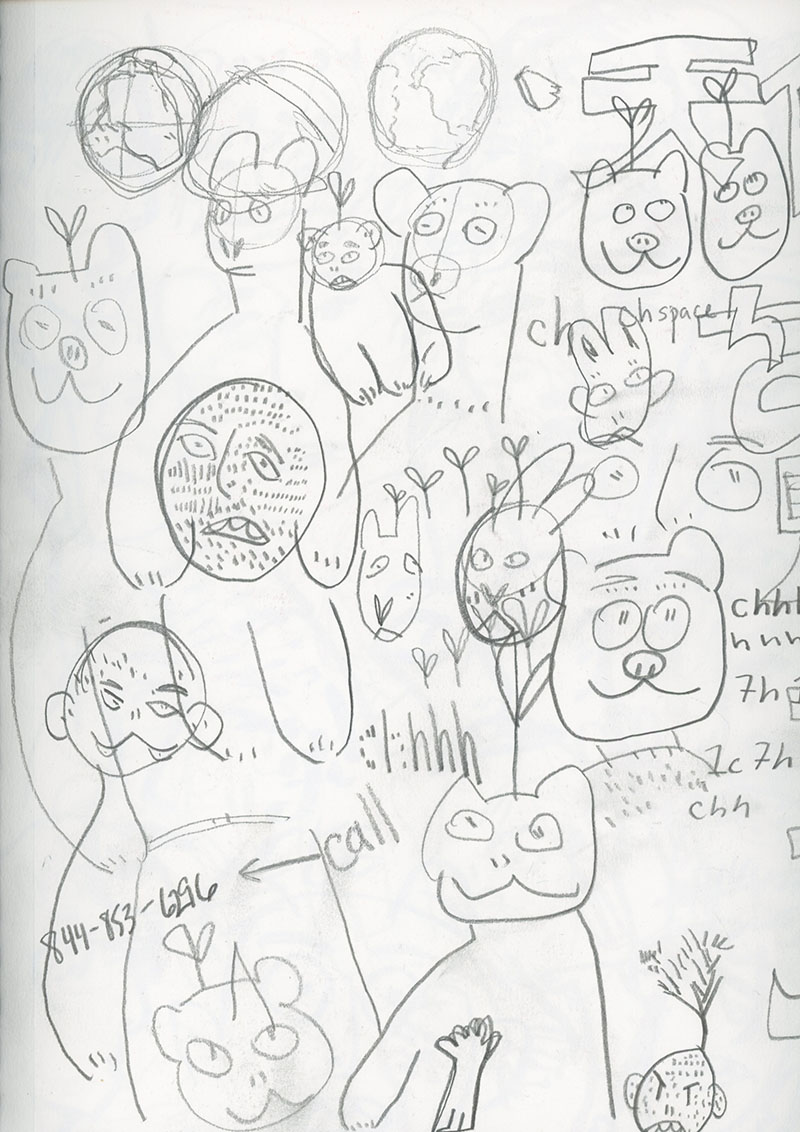 ch chspace
chhh
hnnn
7h
chhhh
1c 7h
chh
call
844-853-6296